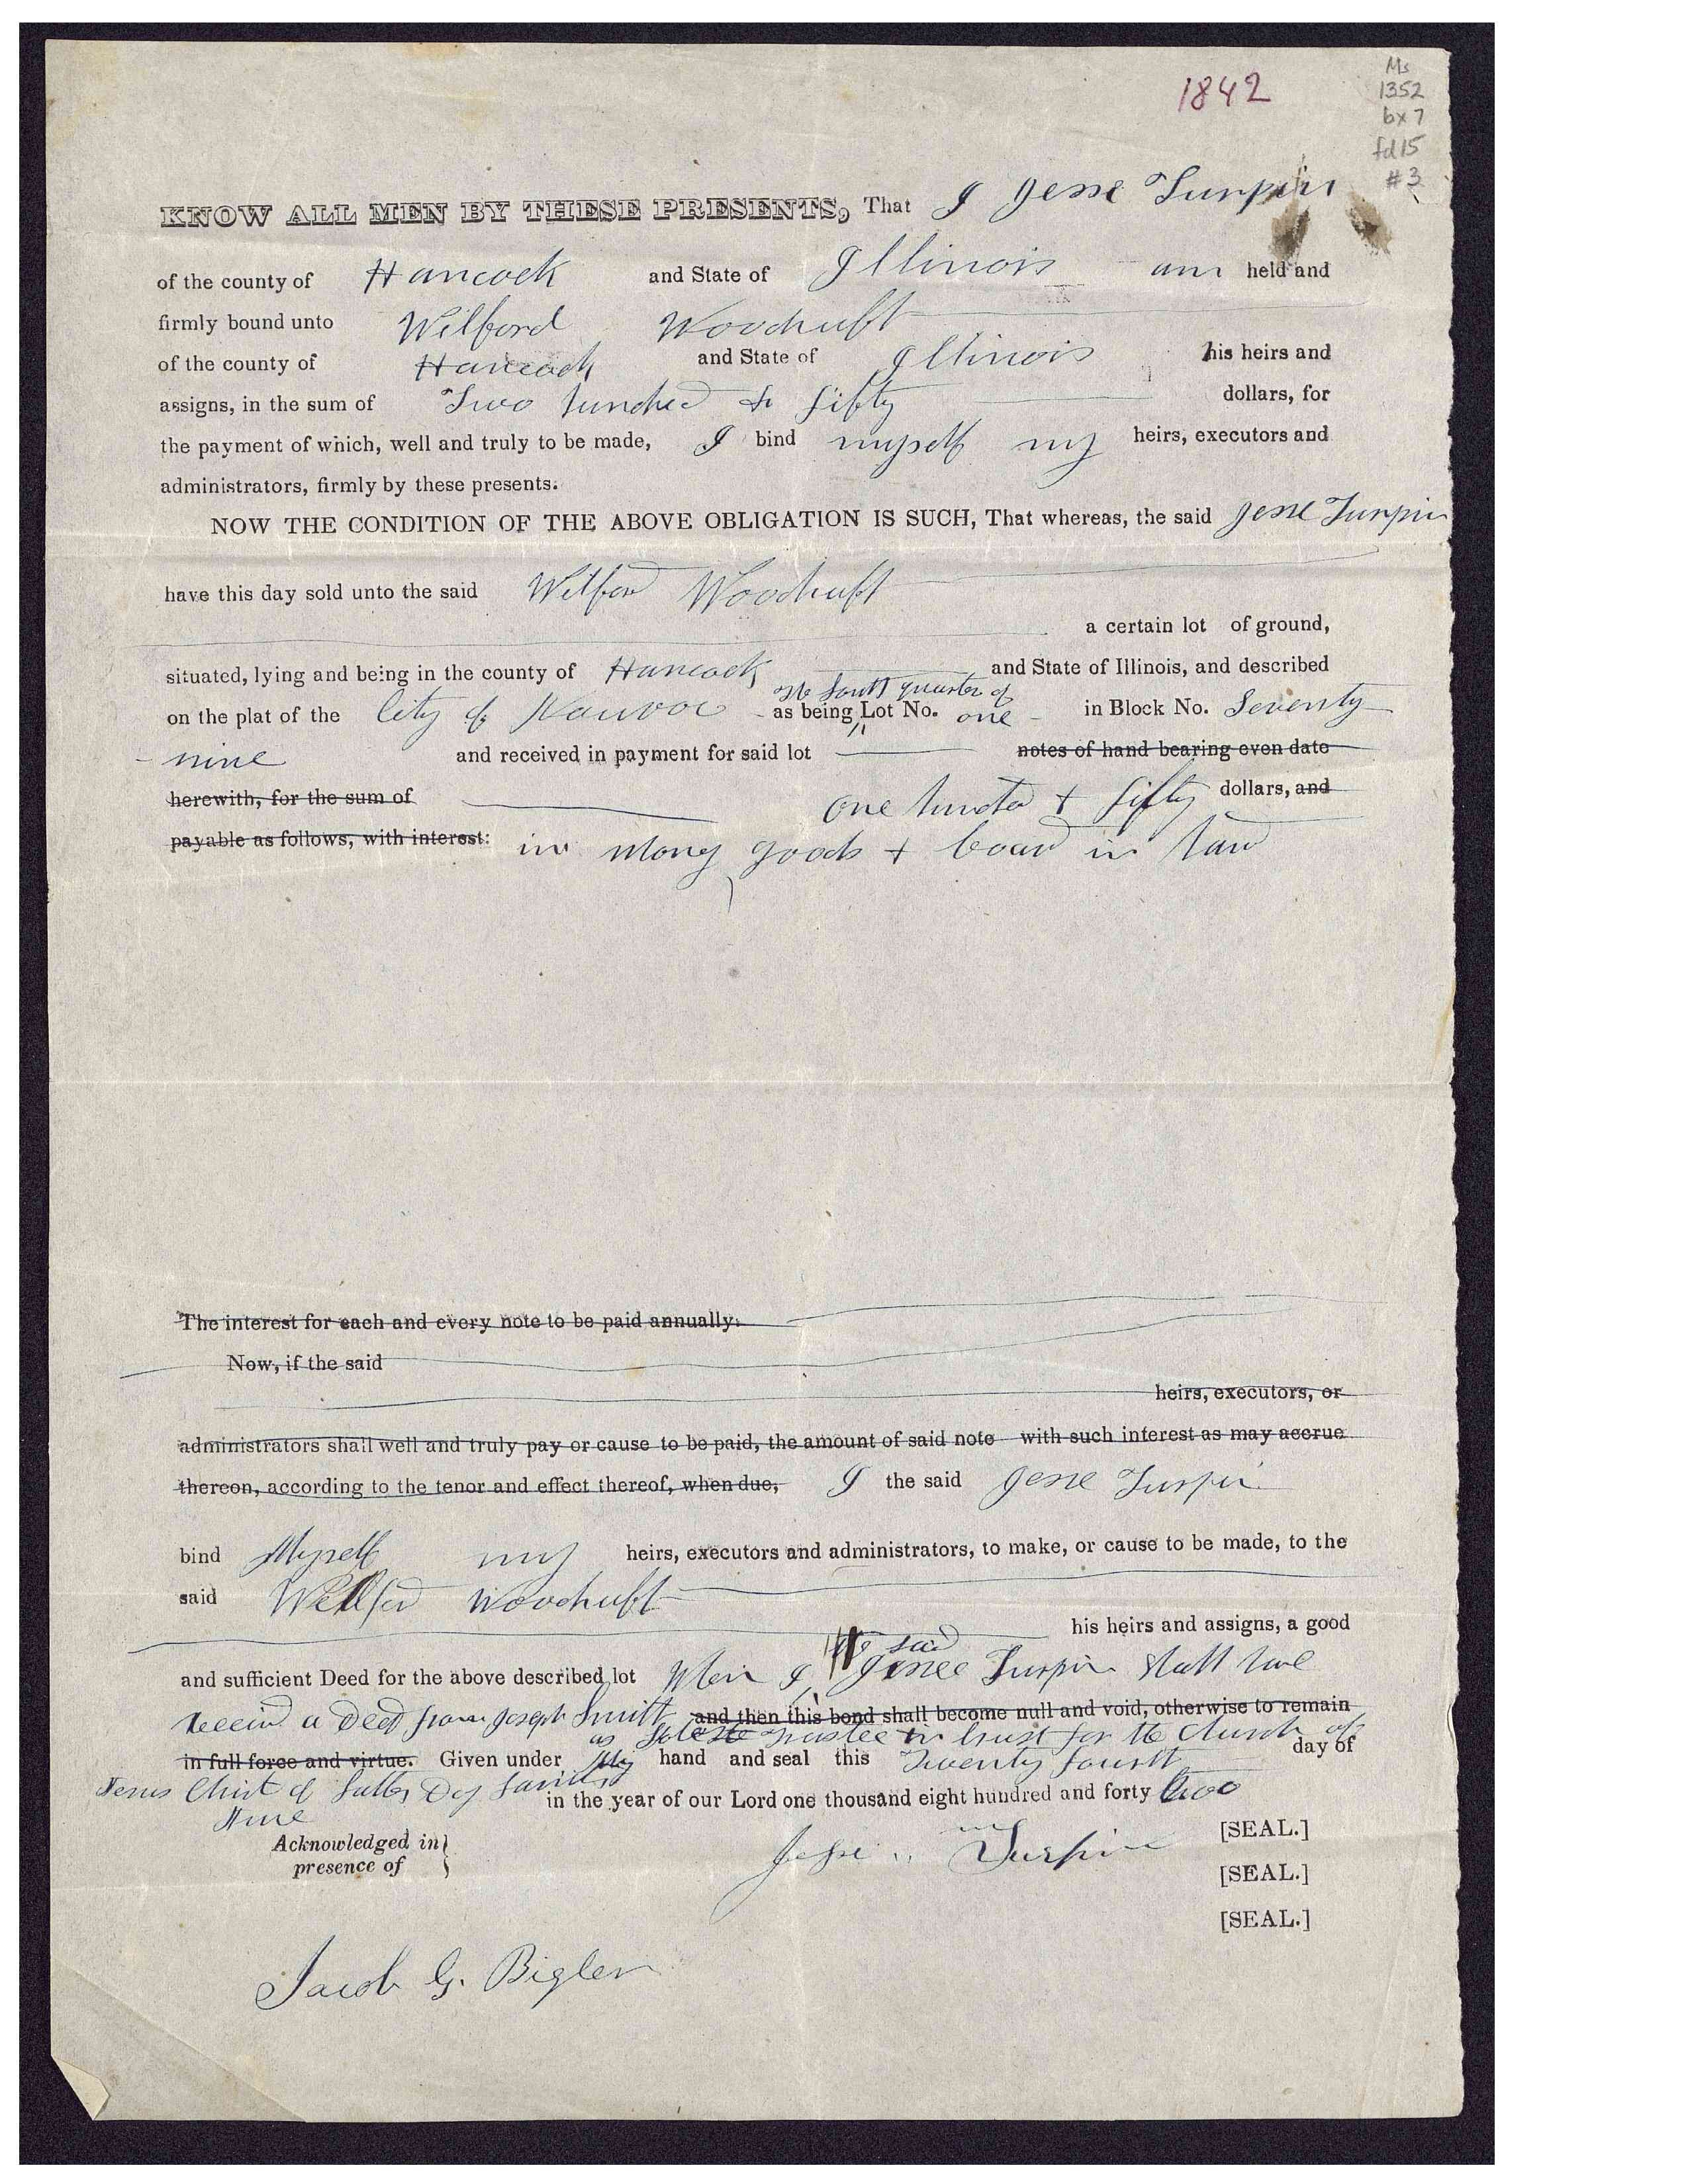 1842
Ms
1352
bx 7
fd 15
#3
KNOW ALL MEN BY THESE PRESENTS, That I Jesse Turpin
of the county of Hancock and State of Illinois am held and
firmly bound unto Wilford Woodruff
of the county of Hancock and State of Illinois his heirs and
assigns, in the sum of Two hundred & fifty dollars, for
the payment of which, well and truly to be made, I bind myself my heirs, executors and
administrators, firmly by these presents.
NOW THE CONDITION OF THE ABOVE OBLIGATION IS SUCH, That whereas, the said Jesse Turpin
have this day sold unto the said Wilford Woodruff
a certain lot of ground,
situated, lying and being in the county of Hancock and State of Illinois, and described
the South quarter of
on the plat of the City of Nauvoo as being Lot No. one in Block No. Seventy
nine and received in payment for said lot notes of hand bearing even date
herewith, for the sum of one hundred + fifty dollars, and
payable as follows, with interest: in mony goods + board in hand
The interest for each and every note to be paid annually.
Now, if the said
heirs, executors, or
administrators shall well and truly pay or cause to be paid, the amount of said note with such interest as may accrue
thereon, according to the tenor and effect thereof, when due, I the said Jesse Turpin
bind Myself my heirs, executors and administrators, to make, or cause to be made, to the
said Willford Woodruff
his heirs and assigns, a good
the said
and sufficient Deed for the above described lot When I Jesse Turpin shall have
received a Deed from Joseph Smith and then this bond shall become null and void, otherwise to remain
as Sole trustee in trust for the Church of
in full force and virtue. Given under My hand and seal this Twenty fourth day of
Jesus Christ of Latter Day Saints
in the year of our Lord one thousand eight hundred and forty two
June
Acknowledged in
presence of
Jesse Turpin [SEAL.]
[SEAL.]
[SEAL.]
Jacob G. Bigler